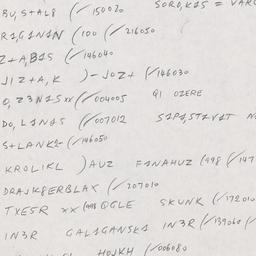 BU,S+AL8 (✓150020 SORO,KAS = VARO
RAGANAN (100 (✓216050
Z+A,BAS (✓146040
JIZ+A,K )-JOZ+ (✓146030
O,Z3NAS xx (✓004005 QI OZERE
DO,LANAS (✓007012 SAPA,STAVAT
S+LANK2- (✓146050
KROLIKL )AUZ FANAHUZ (498 (✓147
DRAJK8ERBLAX (✓207010
TXESR xx (498 QGLE SKUNK (✓172010
IN3R GALAGANSKA IN3R (✓139060 (✓
HOJKH (✓006080